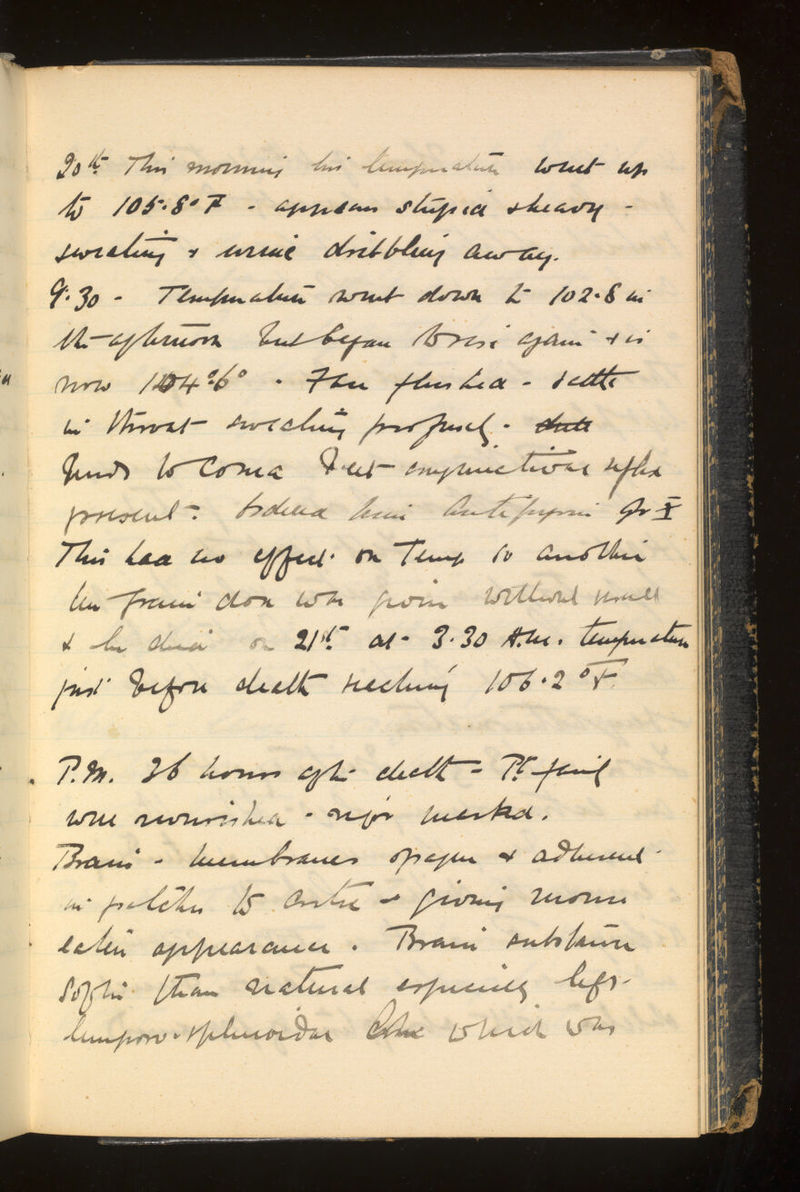 20th This morning his temperature went up
to 105.8°F - appears stupid & heavy -
sweating & urine dribbling away.
9.30 - Temperature went down to 102.8 in
the afternoon but began to rise again & is
now 104.6° . Face flushed - rattle
in throat sweating profusely.
tends to coma but conjunctival reflex
present. Ordered him Antipyrin gr X
This had no effect on Temp so another
ten grain dose was given without result
& he died on 21st at 3.30 A.M. temperature
just before death reaching 106.2°F
P.M. 36 hours after death - Pt fairly
well nourished - rigor marked.
Brain - membranes opaque & adherent
in patches to cortex & giving mouse
eaten appearance. Brain substance
softer than natural especially left
temporo-sphenoidal lobe which was